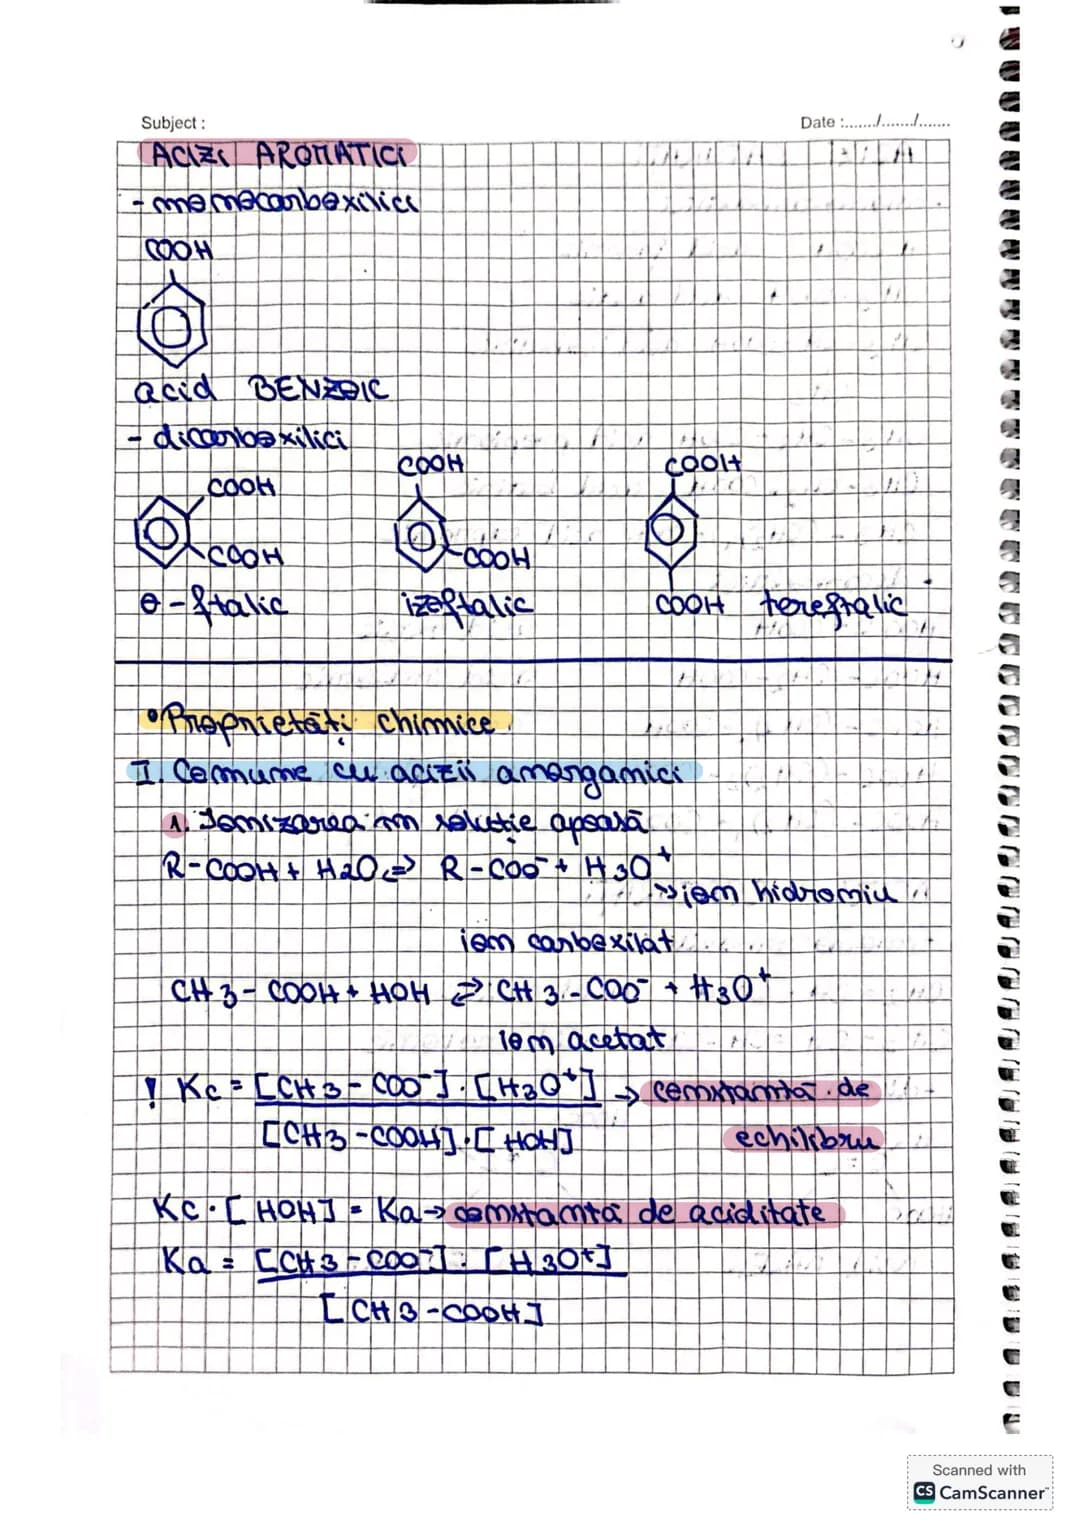 Subject :
Date :......./......./.......
ACIZI AROMATICI
- monocarboxilici
COOH
acid BENZOIC
- dicarboxilici
COOH COOH COOH
COOH COOH
o-ftalic izoftalic COOH tereftalic
• Proprietăți chimice
I. Comune cu acizii anorganici
1. Ionizarea în soluție apoasă
R-COOH + H2O ⇌ R-COO⁻ + H3O⁺
→ ion hidroniu
ion carboxilat
CH3-COOH + HOH ⇌ CH3-COO⁻ + H3O⁺
ion acetat
! Kc = [CH3-COO⁻]·[H3O⁺] → constantă de
[CH3-COOH]·[HOH] echilibru
Kc·[HOH] = Ka → constanta de aciditate
Ka = [CH3-COO⁻]·[H3O⁺]
[CH3-COOH]
Scanned with
CS CamScanner